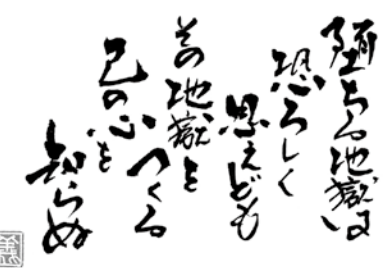 堕ちる地獄は
恐ろしく
思えども
その地獄を
つくる
己の心を
知らぬ